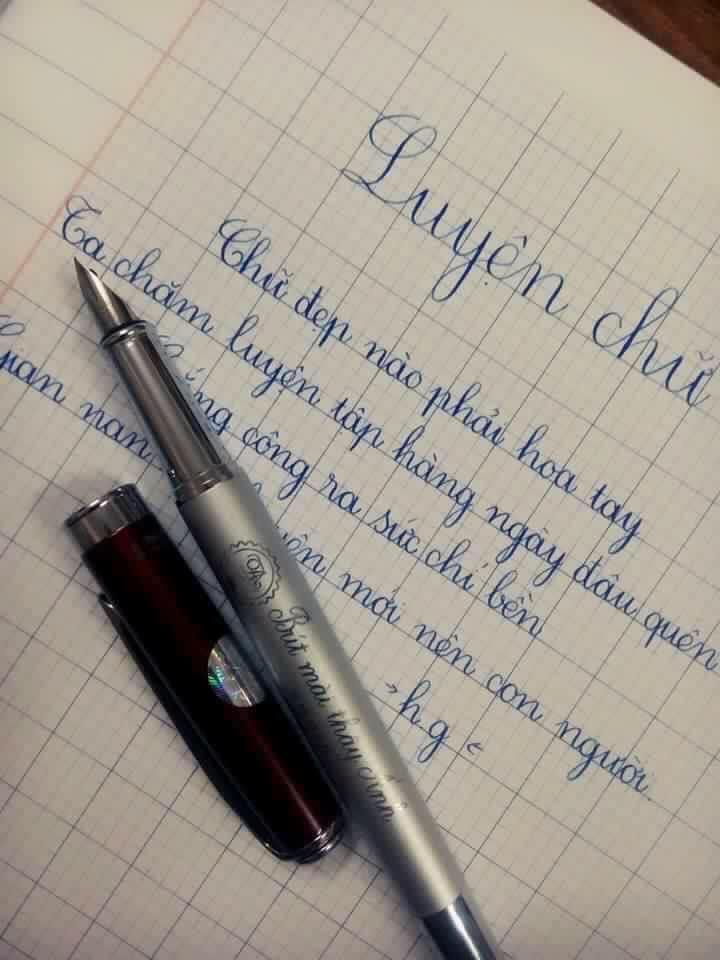 Luyện chữ
Chữ đẹp nào phải hoa tay
Ta chăm luyện tập hàng ngày đâu quên
công ra sức chí bền
Gian nan mới nên con người.
hg
Bút mài thầy Ánh